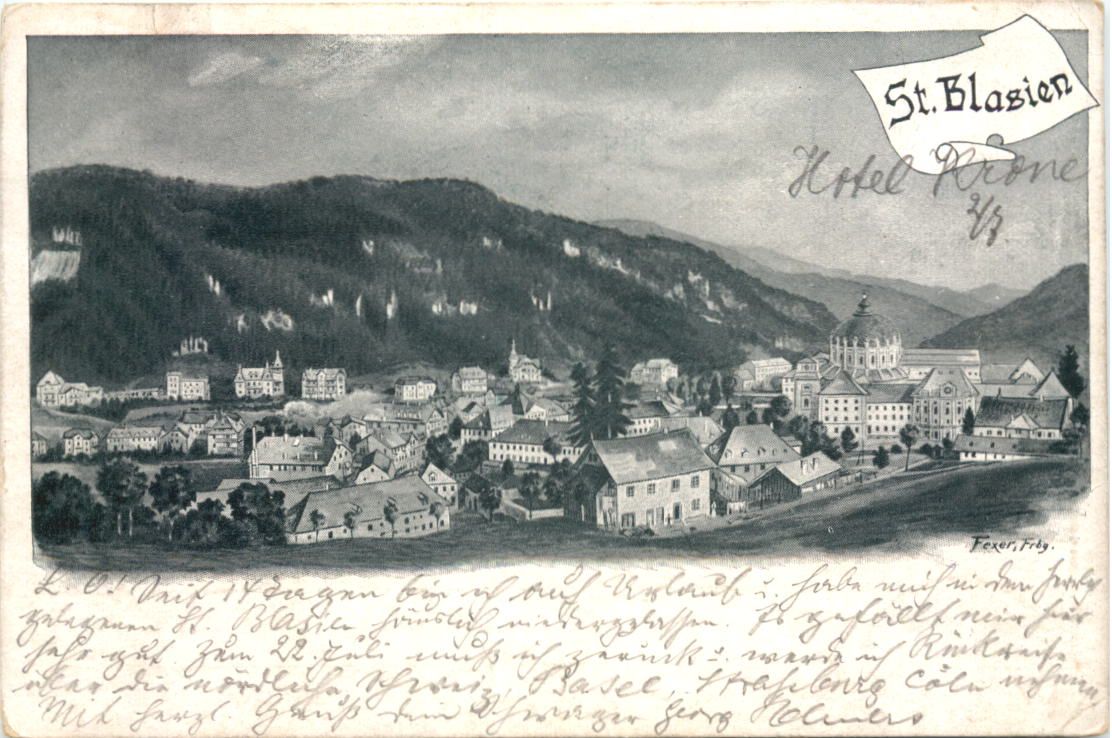 St. Blasien
Hotel Krone
Fexer, Frbg.
L. O! Seit 14 Tagen bin ich auf Urlaub u. habe mich in dem herrl.
gelegenen St. Blasien häuslich niedergelassen. Es gefällt mir hier
sehr gut zum 22. Juli muß ich zurück u. werde ich Rückreise
über die nördliche Schweiz, Basel, Straßburg Cöln nehmen
Mit herzl. Gruß dein Schwager Georg